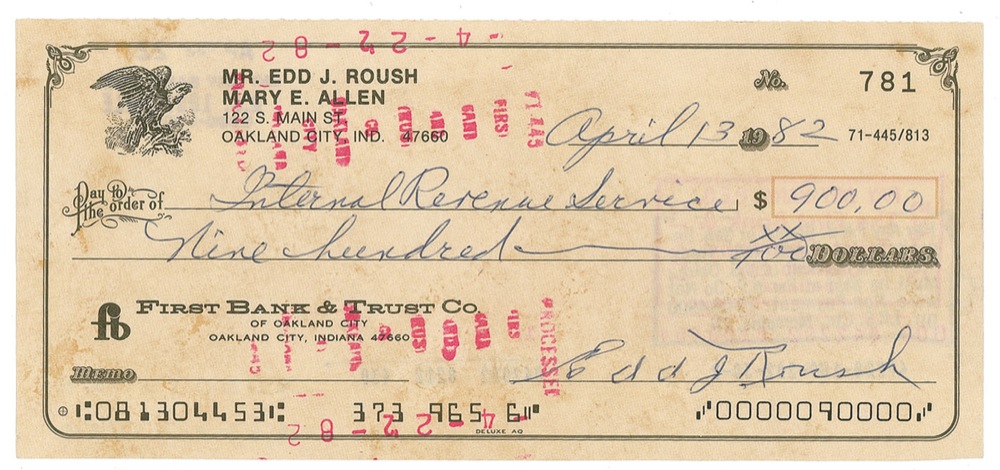 MR. EDD J. ROUSH
MARY E. ALLEN
122 S. MAIN ST.
OAKLAND CITY, IND. 47660
No. 781
April 13 1982 71-445/813
Pay to the order of Internal Revenue Service $ 900.00
Nine hundred xx/100 DOLLARS
fb FIRST BANK & TRUST CO.
OF OAKLAND CITY
OAKLAND CITY, INDIANA 47660
PROCESSED
MEMO Edd J Roush
⑆081304453⑆ 373 965 6⑈ ⑈0000090000⑈
DELUXE AQ
4-22-82
71-445